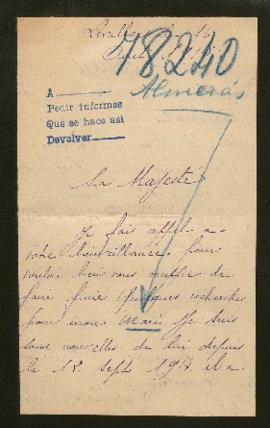 Levallois le 16
78240
Almerás
A
Pedir informes
Que se hace asi
Devolver
Sa Majesté
Je fais appel a
votre bienveillance pour
vouloir bien vous occuper de
faire faire quelques recherches
pour mon Mari Je suis
sans nouvelles de lui depuis
le 18 Sept 1914 il a